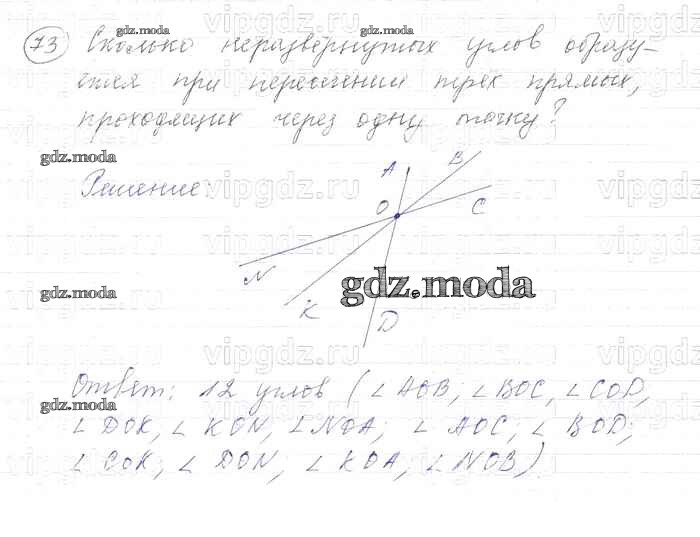 73 Сколько неразвёрнутых углов образу-
ется при пересечении трёх прямых,
проходящих через одну точку?
Решение:
A
B
O
C
N
K
D
Ответ: 12 углов (∠AOB, ∠BOC, ∠COD,
∠DOK, ∠KON, ∠NOA; ∠AOC; ∠BOD;
∠COK; ∠DON; ∠KOA; ∠NOB)
gdz.moda
gdz.moda
gdz.moda
gdz.moda
gdz.moda
gdz.moda
gdz.moda
vipgdz.ru
vipgdz.ru
vipgdz.ru
vipgdz.ru